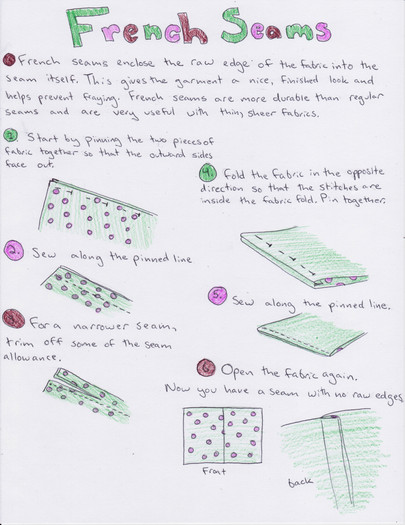 French Seams
French seams enclose the raw edge of the fabric into the
seam itself. This gives the garment a nice, finished look and
helps prevent fraying. French seams are more durable than regular
seams and are very useful with thin, sheer fabrics.
1. Start by pinning the two pieces of
fabric together so that the outward sides
face out.
2. Sew along the pinned line
3. For a narrower seam,
trim off some of the seam
allowance.
4. Fold the fabric in the opposite
direction so that the stitches are
inside the fabric fold. Pin together.
5. Sew along the pinned line.
6. Open the fabric again.
Now you have a seam with no raw edges
Front
back